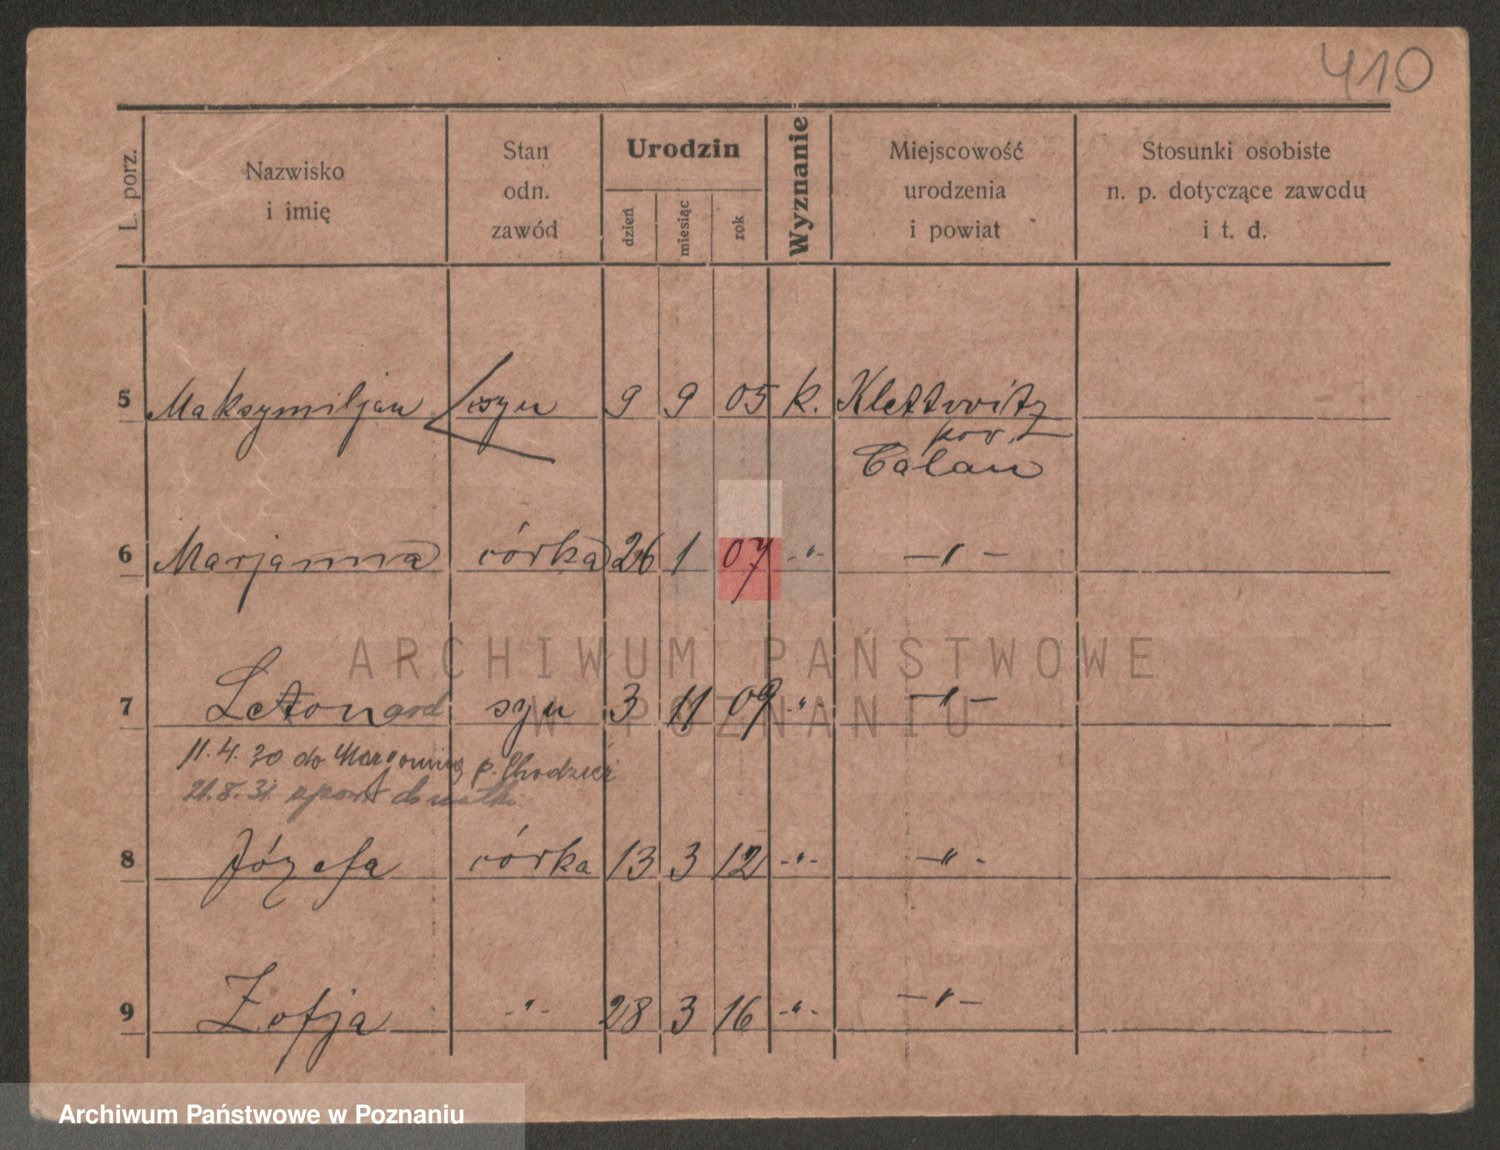 410
L. porz.
Nazwisko
i imię
Stan
odn.
zawód
Urodzin
dzień
miesiąc
rok
Wyznanie
Miejscowość
urodzenia
i powiat
Stosunki osobiste
n. p. dotyczące zawodu
i t. d.
5 Maksymiljan syn 9 9 05 k. Klettwitz
pow.
Calau
6 Marjanna córka 26 1 07 -"- -"-
7 syn 3 11 09 -"- -"-
11.4.30 do Margonina p. Chodzież
21.8.31 do matki
8 Józefa córka 13 3 12 -"- -"-
9 Zofja -"- 28 3 16 -"- -"-
ARCHIWUM PAŃSTWOWE
W POZNANIU
Archiwum Państwowe w Poznaniu